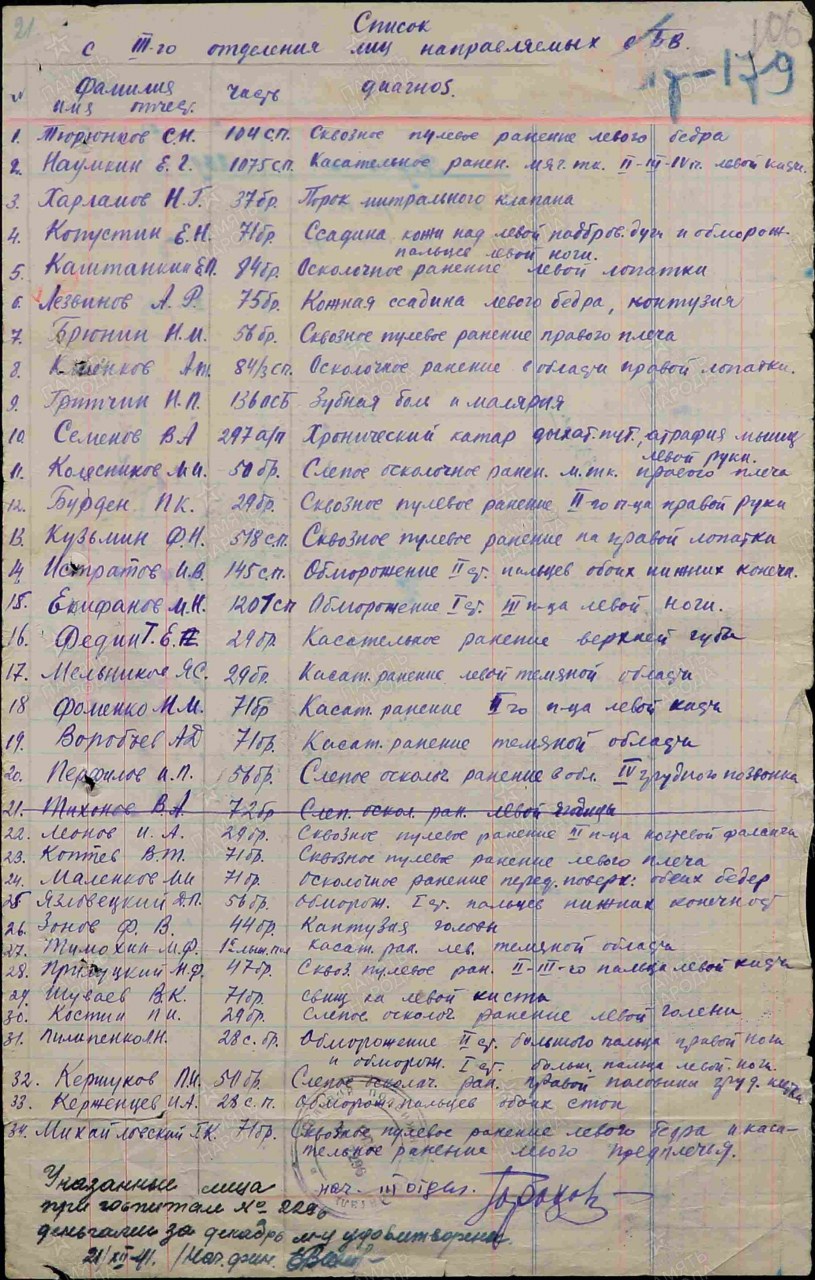 21
106
Список
с III-го отделения лиц направляемых
17-9
№ Фамилия имя отчест. часть диагноз.
1. Тюрюнков С.Н. 104 с.п. Сквозное пулевое ранение левого бедра
2. Наумкин Е.Г. 1075 с.п. Касательное ранен. мяг. тк. II-III-IV п. левой кисти.
3. Харламов Н.Г. 37 бр. Порок митрального клапана
4. Копустин Е.Н. 71 бр. Ссадина кожи над левой надбров. дуги и обморож.
пальцев левой ноги.
5. Каштанкин Е.П. 84 бр. Осколочное ранение левой лопатки
6. Лезвинов А.Р. 75 бр. Кожная ссадина левого бедра, контузия
7. Брюнин Н.М. 56 бр. Сквозное пулевое ранение правого плеча
8. 84/3 с.п. Осколочное ранение в области правой лопатки.
9. Притчин Н.П. 136 ОСБ Зубная бол и малярия
10. Семенов В.А 297 а/п Хронический катар дыхат. пут., атрафия мышц
левой руки.
11. Колесников М.И. 50 бр. Слепое осколочное ранен. м. тк. правого плеча
12. Бурден П.К. 29 бр. Сквозное пулевое ранение II-го п-ца правой руки
13. Кузьмин Ф.Н. 518 с.п. Сквозное пулевое ранение на правой лопатки
14. Истратов И.В. 145 с.п. Обморожение II ст. пальцев обоих нижних конечн.
15. Епифанов М.Н. 1207 сп Обморожение I ст. III п-ца левой ноги.
16. Федин Т.Е. 29 бр. Касательное ранение верхней губы
17. Мельников Я.С. 29 бр. Касат. ранение левой темяной области
18 Фоменко М.М. 71 бр Касат. ранение II го п-ца левой кисти
19. Воробьев А.Д 71 бр. Касат. ранение темяной области
20. Перфилов И.П. 56 бр. Слепое осколоч. ранение в обл. IV грудного позвонка
21. Тихонов В.А 72 бр Слеп. оскол. ран. левой ягодицы
22. Леонов И.А. 29 бр. Сквозное пулевое ранение II п-ца ногтевой фаланги
23. Коптев В.Т. 71 бр. Сквозное пулевое ранение левого плеча
24. Маленков М.И 71 бр. Осколочное ранение перед. поверх. обеих бедер
25 Язловецкий Я.П. 56 бр. Обморож. I ст. пальцев нижних конечност
26. Зонов Ф.В. 44 бр. Кантузия головы
27. Тимохин М.Ф. Касат. ран. лев. темяной области
28. Прилуцкий Н.Ф. 47 бр. Сквоз. пулевое ран. II-III-го пальца левой кисти
29. Шуваев В.К. 71 бр. свищ на левой кисти
30. Костин П.И. 29 бр. Слепое осколоч. ранение левой голени
31. Пилипенко Л.Н. 28 с. бр. Обморожение II ст. большого пальца правой ноги
и обморож. I ст. больш. пальца левой ноги.
32. Кершуков П.И. 50 бр. Слепое осколоч. ран. правой половины груд. клетки
33. Керженцев И.А. 28 с.п. Обморож. пальцев обоих стоп
34. Михайловский Г.К. 71 бр. Сквозное пулевое ранение левого бедра и каса-
тельное ранение левого предплечья.
Указанные лица
при госпитал № 2296
деньгами за декабрь м-ц удовлтворены
21/XII-41. /Нач. фин.
нач. III отдел.